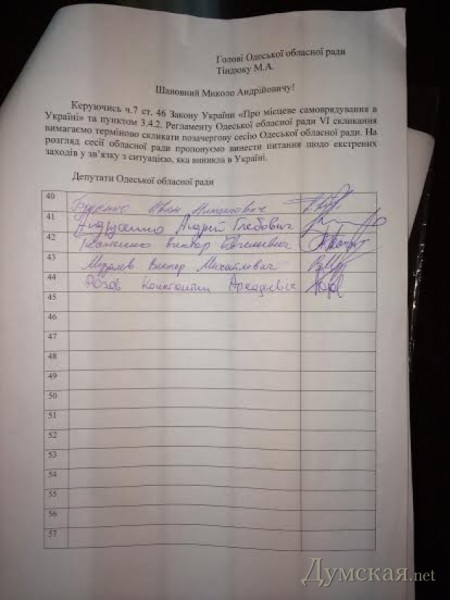 Голові Одеської обласної ради
Тіндюку М.А.
Шановний Миколо Андрійовичу!
Керуючись ч.7 ст. 46 Закону України «Про місцеве самоврядування в
Україні» та пунктом 3.4.2. Регламенту Одеської обласної ради VI скликання
вимагаємо терміново скликати позачергову сесію Одеської обласної ради. На
розгляд сесії обласної ради пропонуємо винести питання щодо екстрених
заходів у зв'язку з ситуацією, яка виникла в Україні.
Депутати Одеської обласної ради
40 Іван
41 Андрій Глебович
42 Виктор
43 Виктор Михайлевич
44 Розов Константин Аркадевич
45
46
47
48
49
50
51
52
53
54
55
56
57
Думская.net